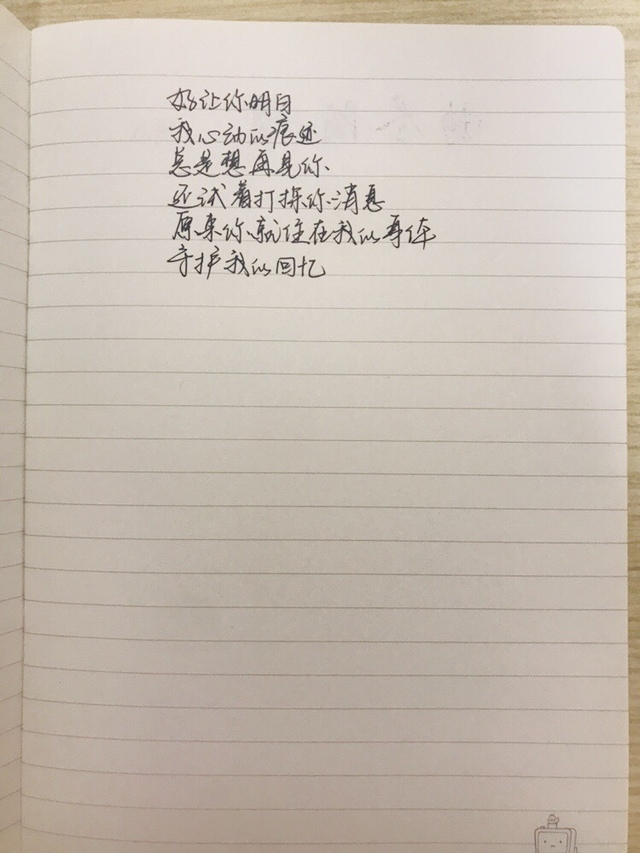 好让你明白
我心动的痕迹
总是想再见你
还试着打探你消息
原来你就住在我的身体
守护我的回忆